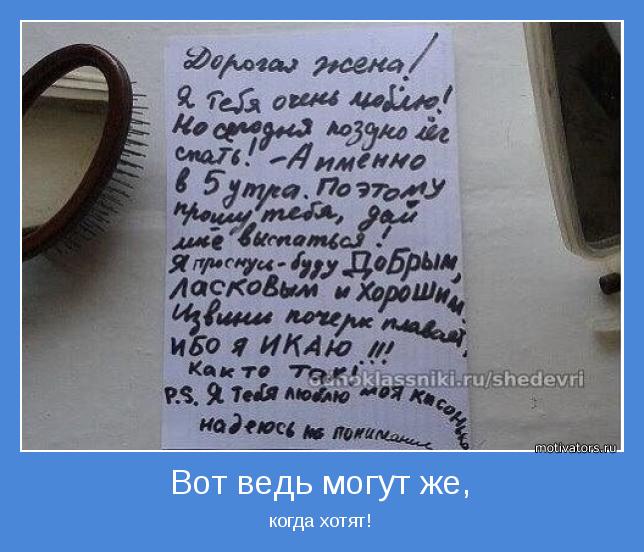 Дорогая жена!
Я тебя очень люблю!
Но сегодня поздно лёг
спать! - А именно
в 5 утра. Поэтому
прошу тебя, дай
мне выспаться!
Я проснусь - буду Добрым,
Ласковым и Хорошим
Извини почерк плавает,
ИБО Я ИКАЮ !!!
Как то так!
odnoklassniki.ru/shedevri
P.S. Я тебя люблю моя кисонька
надеюсь на понимание
motivators.ru
Вот ведь могут же,
когда хотят!